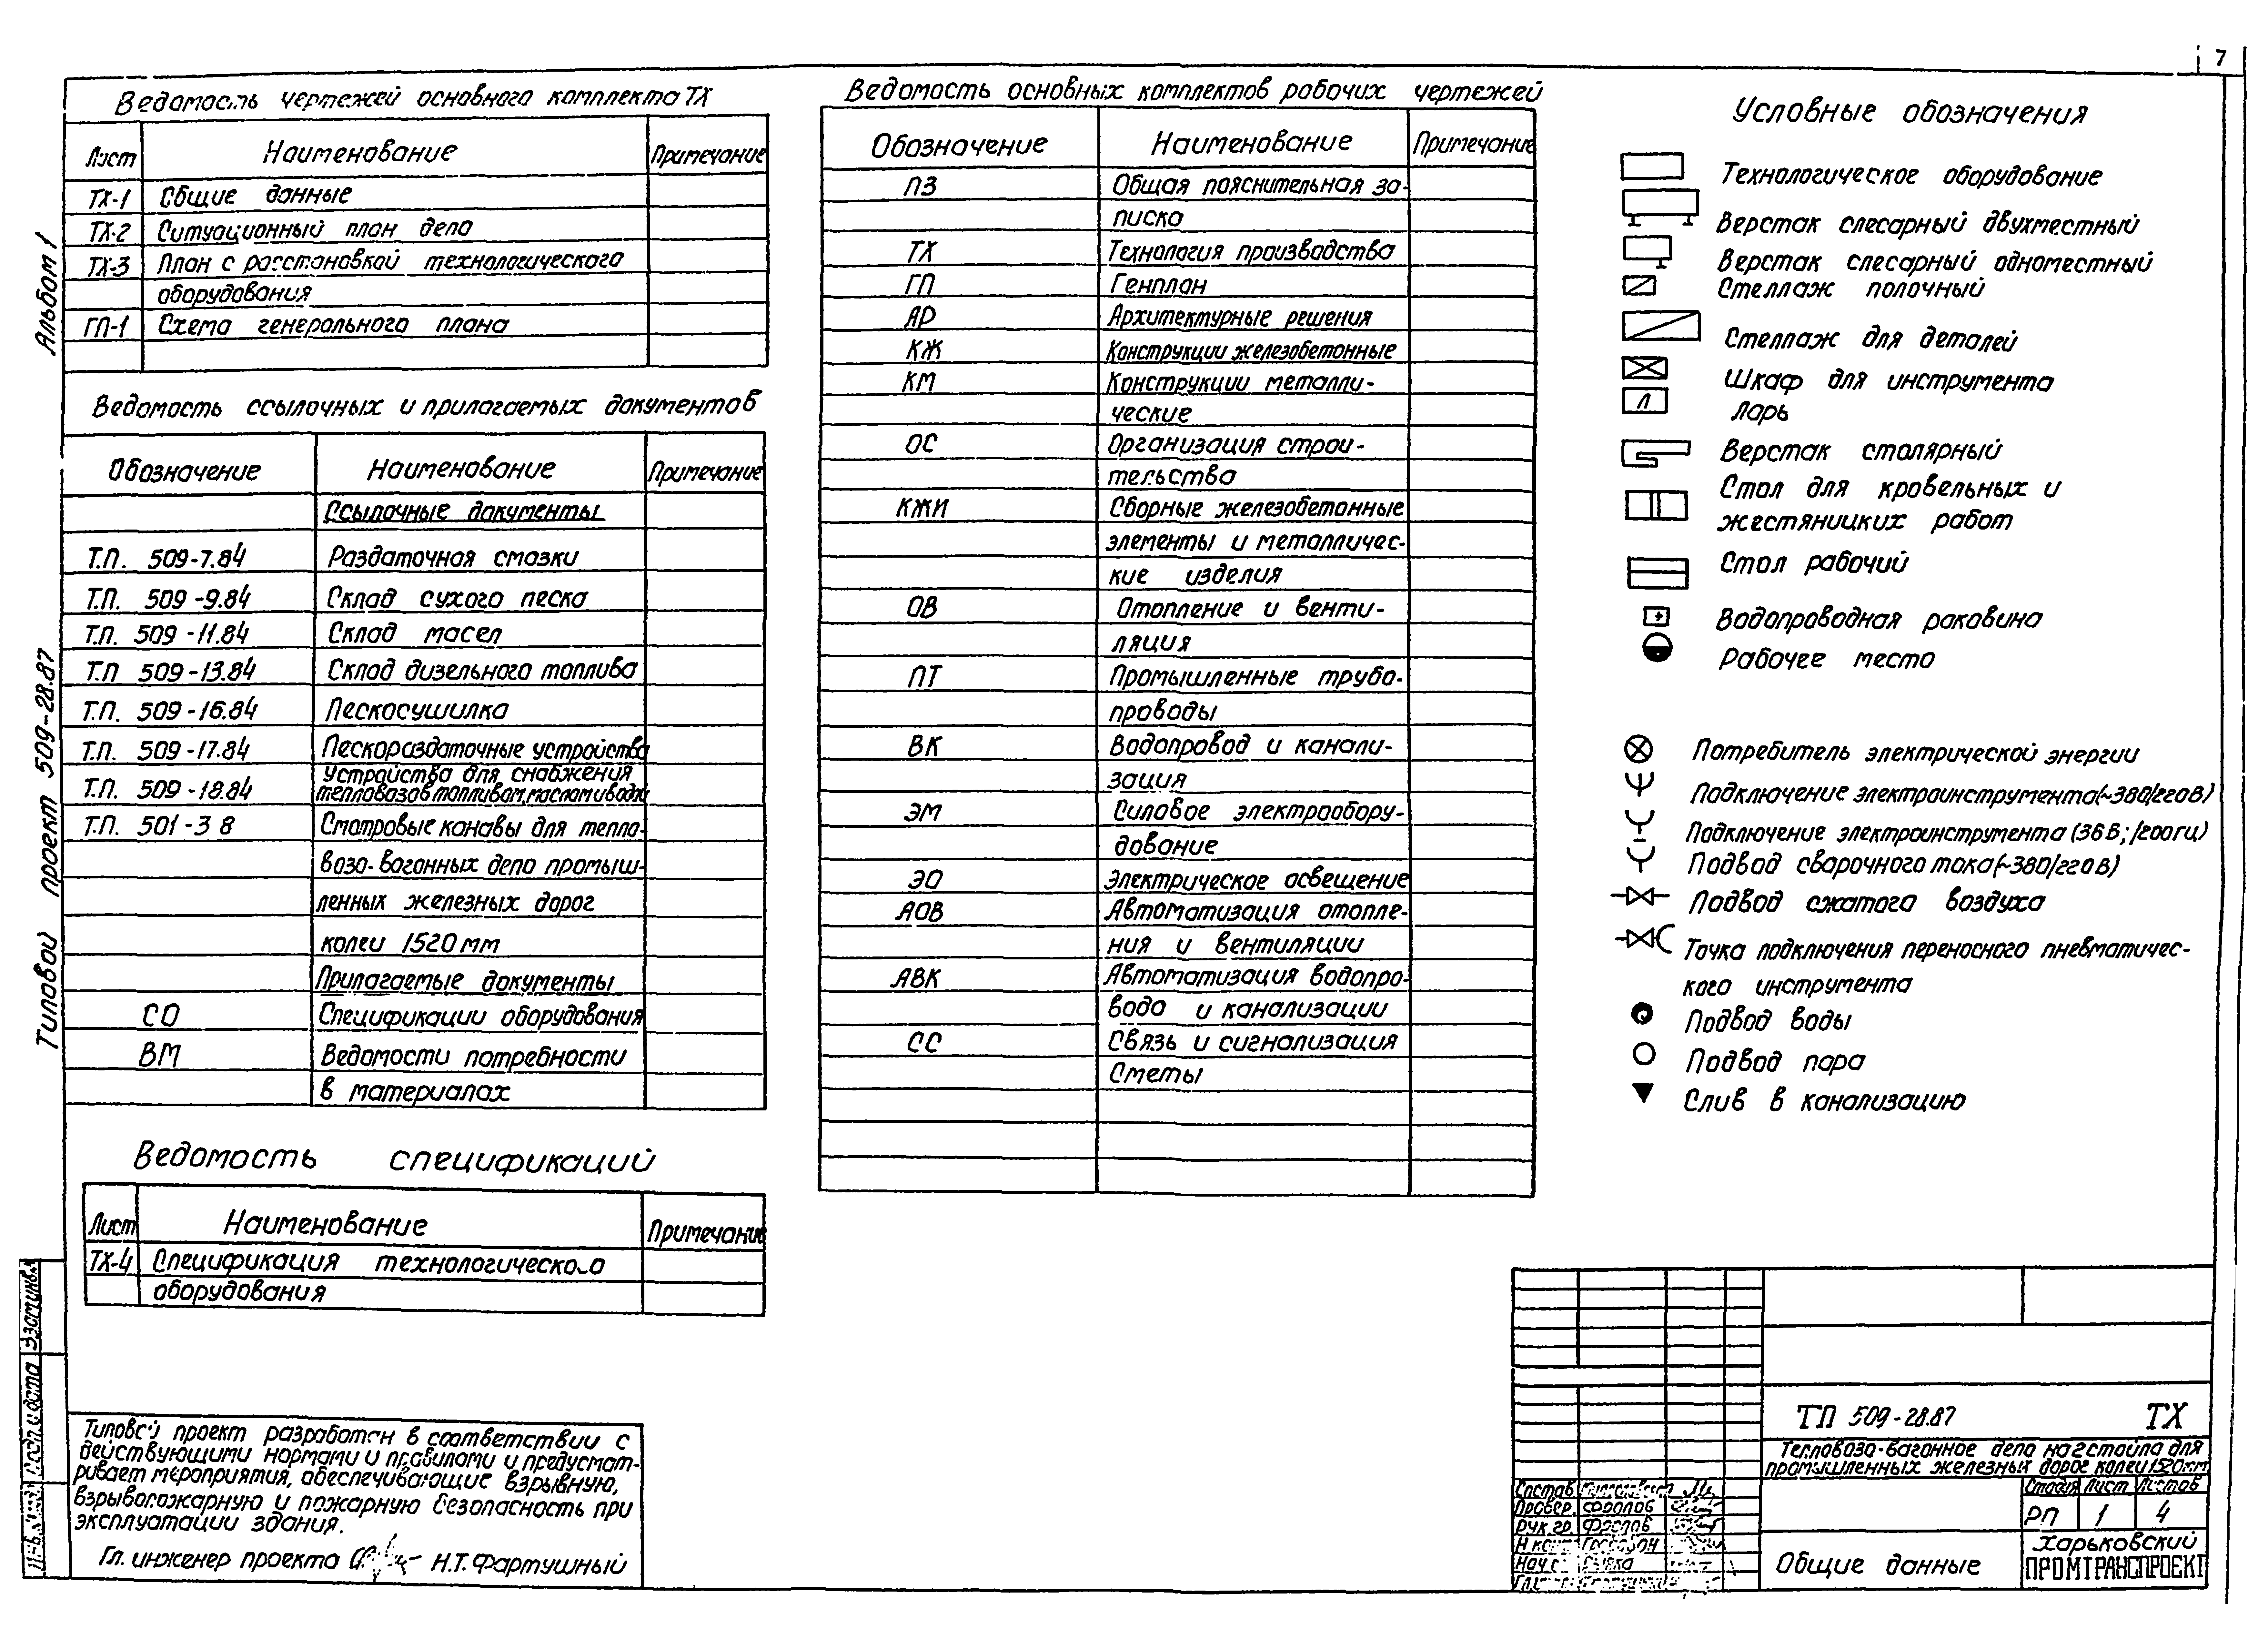 7
Альбом 1
Типовой проект 509-28.87
Ведомость чертежей основного комплекта ТХ
Лист Наименование Примечание
ТХ-1 Общие данные
ТХ-2 Ситуационный план депо
ТХ-3 План с расстановкой технологического
оборудования
ГП-1 Схема генерального плана
Ведомость ссылочных и прилагаемых документов
Обозначение Наименование Примечание
Ссылочные документы
Т.П. 509-7.84 Раздаточная смазки
Т.П. 509-9.84 Склад сухого песка
Т.П. 509-11.84 Склад масел
Т.П 509-13.84 Склад дизельного топлива
Т.П. 509-16.84 Пескосушилка
Т.П. 509-17.84 Пескораздаточные устройства
Т.П. 509-18.84 Устройства для снабжения
тепловозов топливом, маслом и водой
Т.П. 501-38 Смотровые канавы для тепло-
возо-вагонных депо промыш-
ленных железных дорог
колеи 1520 мм
Прилагаемые документы
СО Спецификации оборудования
ВМ Ведомости потребности
в материалах
Ведомость спецификаций
Лист Наименование Примечание
ТХ-4 Спецификация технологического
оборудования
Типовой проект разработан в соответствии с
действующими нормами и правилами и предусмат-
ривает мероприятия, обеспечивающие взрывную,
взрывопожарную и пожарную безопасность при
эксплуатации здания.
Гл. инженер проекта Н.Т. Фартушный
Ведомость основных комплектов рабочих чертежей
Обозначение Наименование Примечание
ПЗ Общая пояснительная за-
писка
ТХ Технология производства
ГП Генплан
АР Архитектурные решения
КЖ Конструкции железобетонные
КМ Конструкции металли-
ческие
ОС Организация строи-
тельства
КЖИ Сборные железобетонные
элементы и металличес-
кие изделия
ОВ Отопление и венти-
ляция
ПТ Промышленные трубо-
проводы
ВК Водопровод и канали-
зация
ЭМ Силовое электрообору-
дование
ЭО Электрическое освещение
АОВ Автоматизация отопле-
ния и вентиляции
АВК Автоматизация водопро-
вода и канализации
СС Связь и сигнализация
Сметы
Условные обозначения
Технологическое оборудование
Верстак слесарный двухместный
Верстак слесарный одноместный
Стеллаж полочный
Стеллаж для деталей
Шкаф для инструмента
Л Ларь
Верстак столярный
Стол для кровельных и
жестяницких работ
Стол рабочий
Водопроводная раковина
Рабочее место
Потребитель электрической энергии
Подключение электроинструмента (~380/220В)
Подключение электроинструмента (36В; /200гц)
Подвод сварочного тока (~380/220В)
Подвод сжатого воздуха
Точка подключения переносного пневматичес-
кого инструмента
Подвод воды
Подвод пара
Слив в канализацию
ТП 509-28.87 ТХ
Тепловозо-вагонное депо на 2 стойла для
промышленных железных дорог колеи 1520мм
Стадия Лист Листов
РП 1 4
Состав.
Провер. Фролов
Рук.гр. Фролов
Общие данные
Харьковский
ПРОМТРАНСПРОЕКТ
Подп. и дата